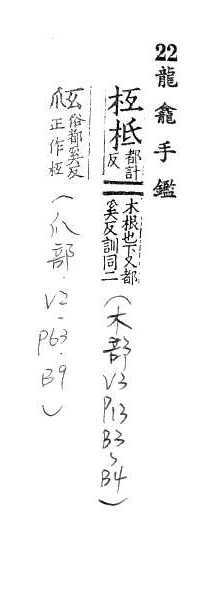 22龍龕手鑑
枑柢都計反木根也下又都奚反訓同二(木部V3P13B3、B4)
俗都奚反正作枑(爪部.V2-P63.B9)